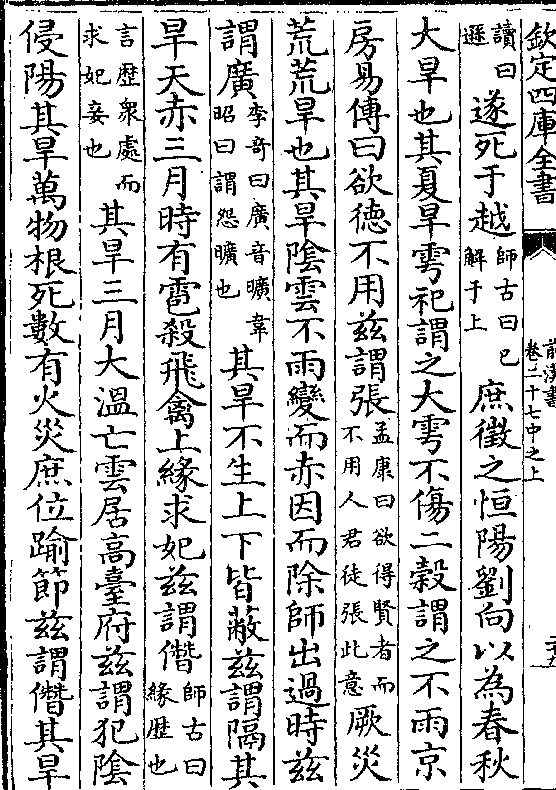 欽定四庫全書
前漢書
卷二十七中之上
讀曰遜遂死于越師古曰已解于上庶徵之恒陽劉向以為春秋
大旱也其夏旱雩祀謂之大雩不傷二穀謂之不雨京
房易傳曰欲德不用茲謂張孟康曰欲得賢者而不用人君徒張此意厥災
荒荒旱也其旱陰雲不雨變而赤因而除師出過時茲
謂廣李奇曰廣音曠韋昭曰謂怨曠也其旱不生上下皆蔽茲謂隔其
旱天赤三月時有雹殺飛禽上緣求妃茲謂僭師古曰緣歴也
言歴衆處而求妃妾也其旱三月大溫亡雲居高臺府茲謂犯陰
侵陽其旱萬物根死數有火災庶位踰節茲謂僭其旱